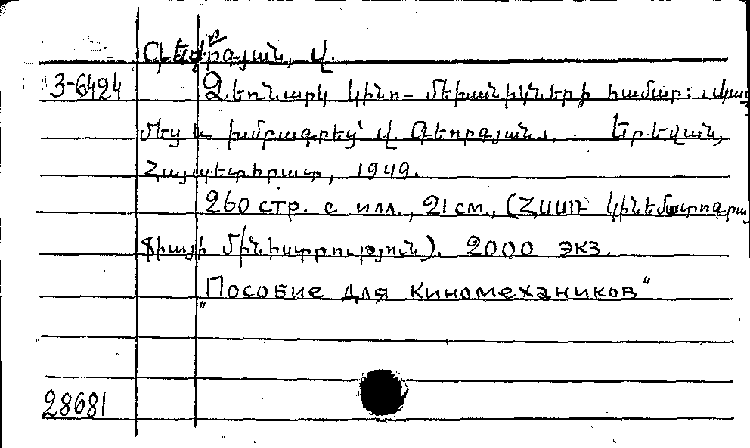 Գևորգյան, Վ.
3-6424 Ձեռնարկ կինո-մեխանիկների համար: Կազ
մեց և խմբագրեց՝ Վ. Գևորգյանը. Երեվան,
Հայպետհրատ, 1949.
260 стр. с илл., 21 см., (ՀՍՍՌ կինեմատոգրա
ֆիայի մինիստրություն). 2000 экз.
"Пособие для киномехаников"
28681